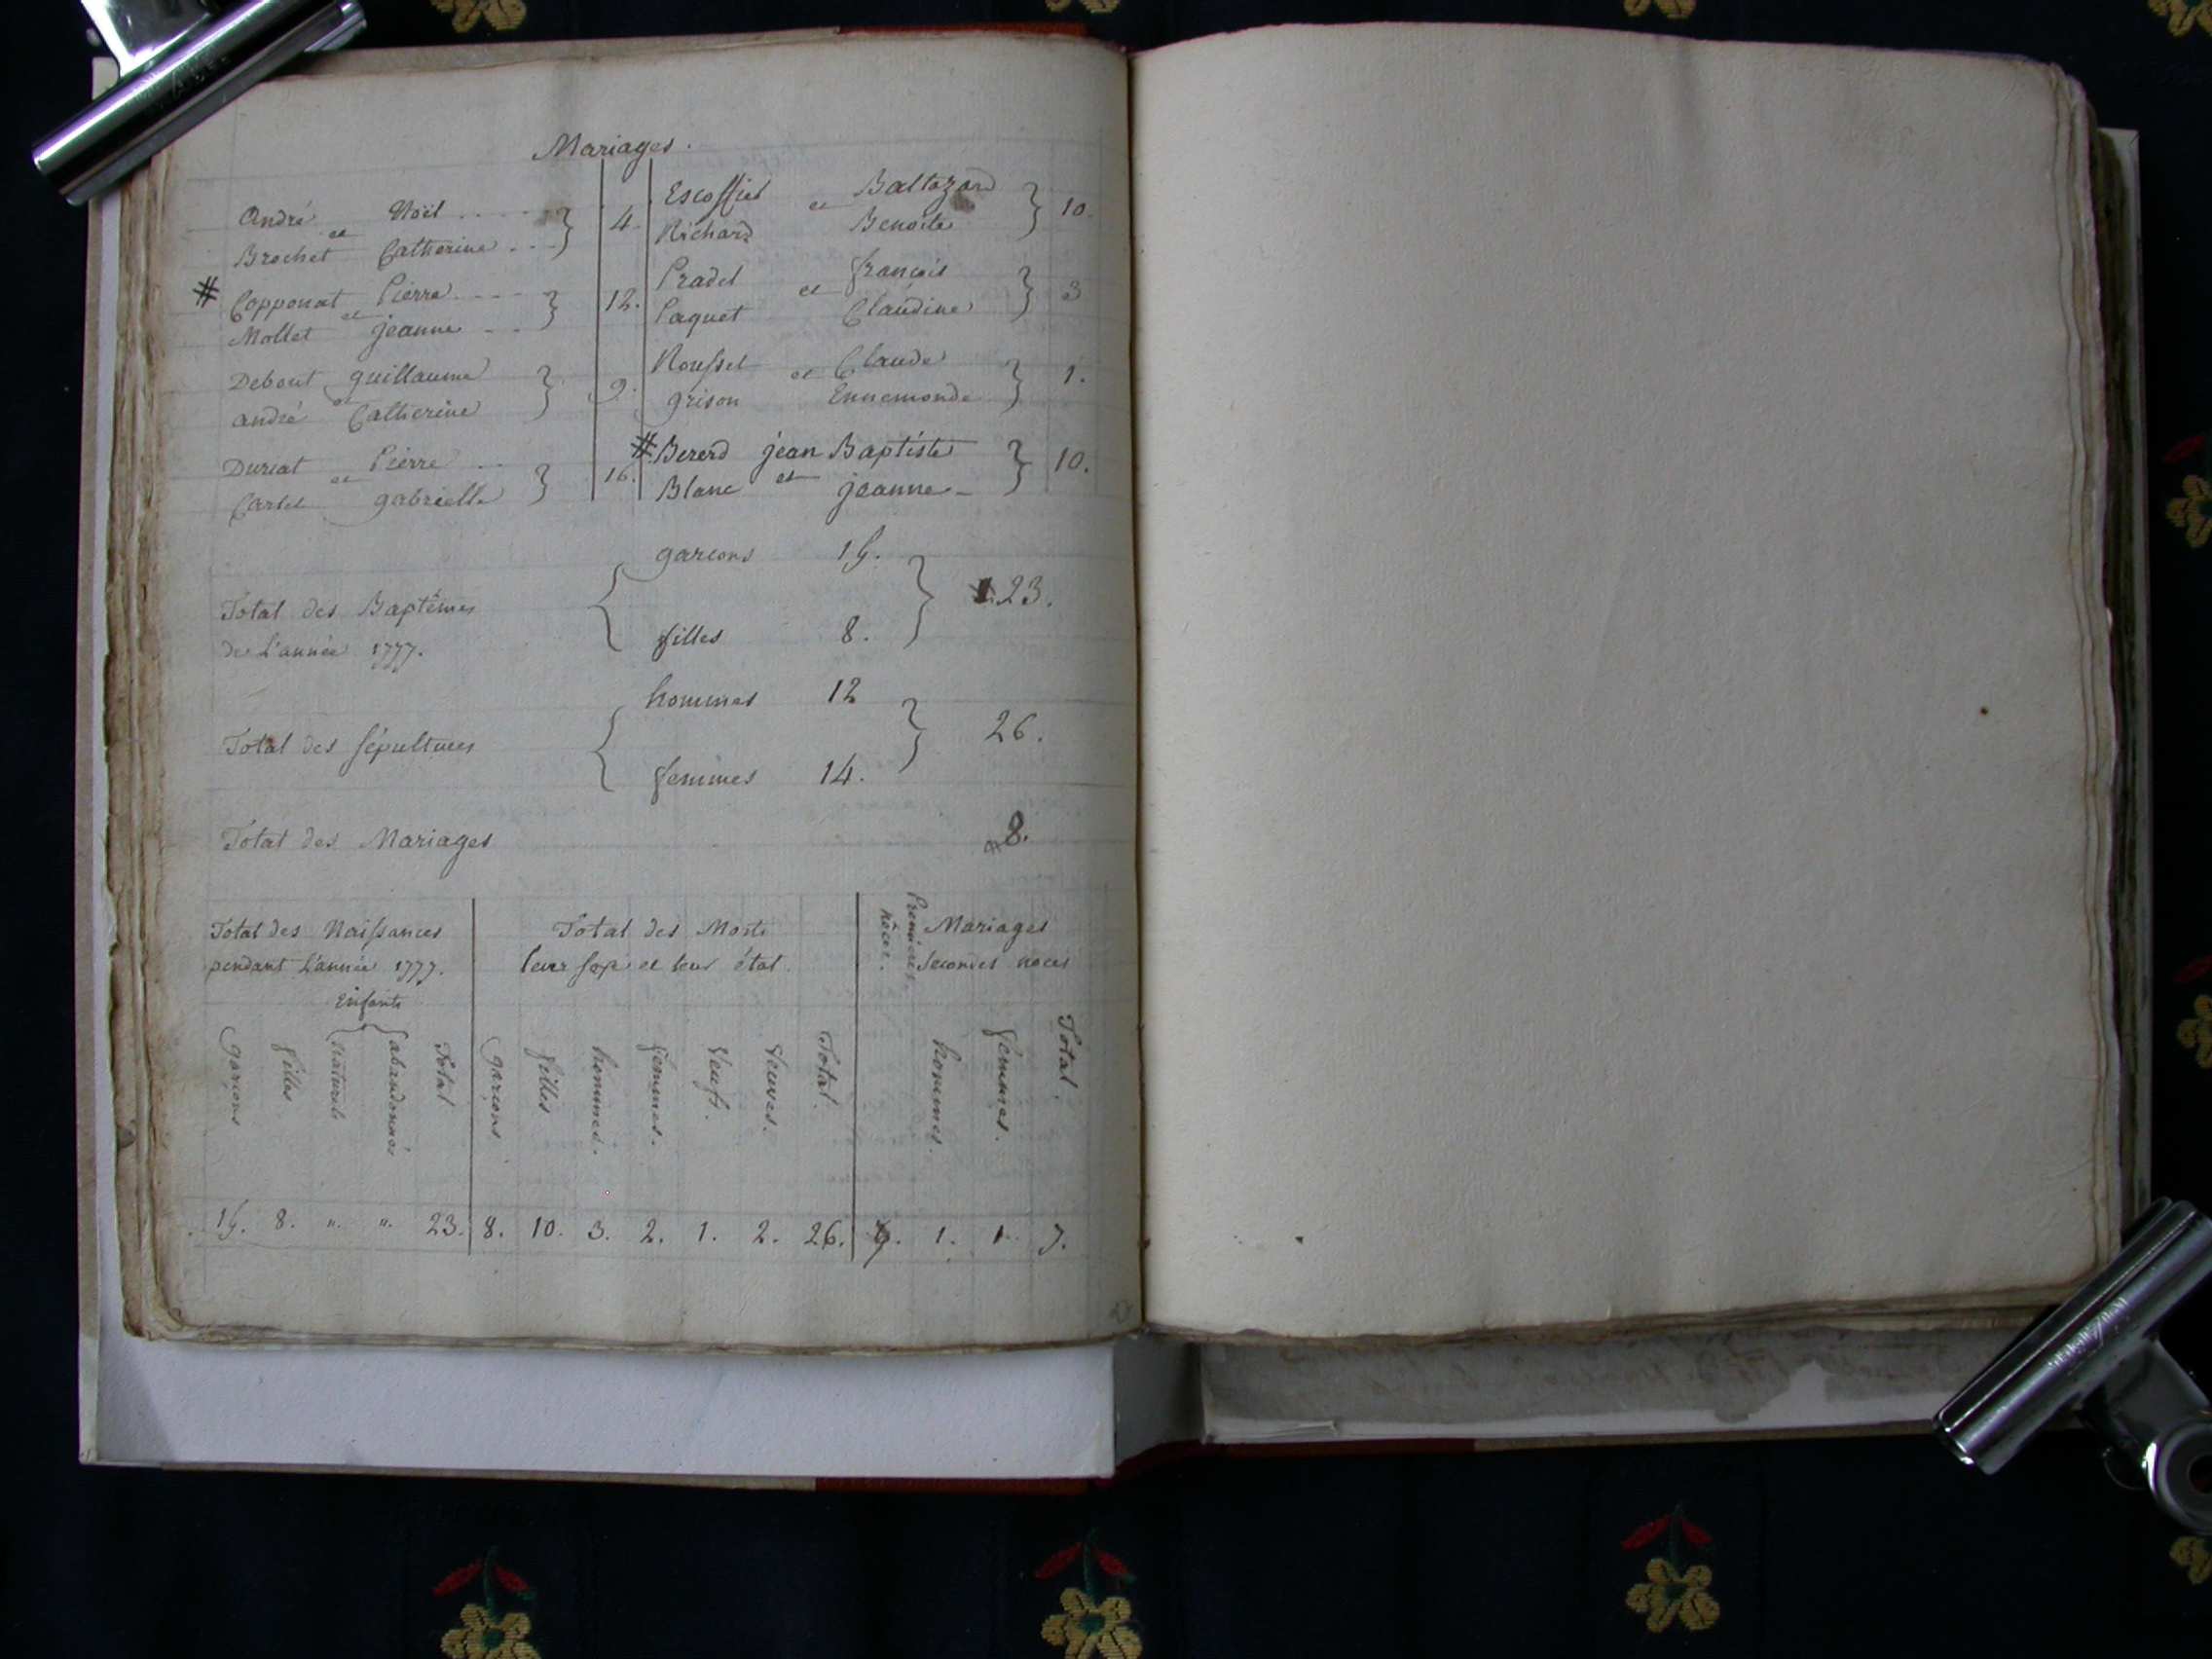 Mariages.
André Noël
et
Brochet Catherine
4.
# Copponat Pierre
et
Mollet jeanne
12.
Debout guillaume
et
andré Catherine
9.
Duriat Pierre
et
gabrielle
16.
Escoffier Baltazard
et
Richard Benoite
10.
Pradel françois
et
Paquet Claudine
3
Roussel et Claude
grison Ennemonde
1.
# Bererd jean Baptiste
Blanc et jeanne
10.
garcons 15.
Total des Baptêmes 23.
de L'année 1777. filles 8.
hommes 12
Total des sépultures 26.
femmes 14.
Total des Mariages 8.
Total des Naissances
pendant L'année 1777.
Enfants
garçons
filles
naturels
abandonnés
Total
Total des Morts
leur sexe et leur état.
garçons
filles
hommes.
femmes.
Veufs.
Veuves.
Total.
Premières
nôces.
Mariages
secondes noces
hommes.
femmes.
Total.
15. 8. ". ". 23. 8. 10. 3. 2. 1. 2. 26. 1. 1. 7.